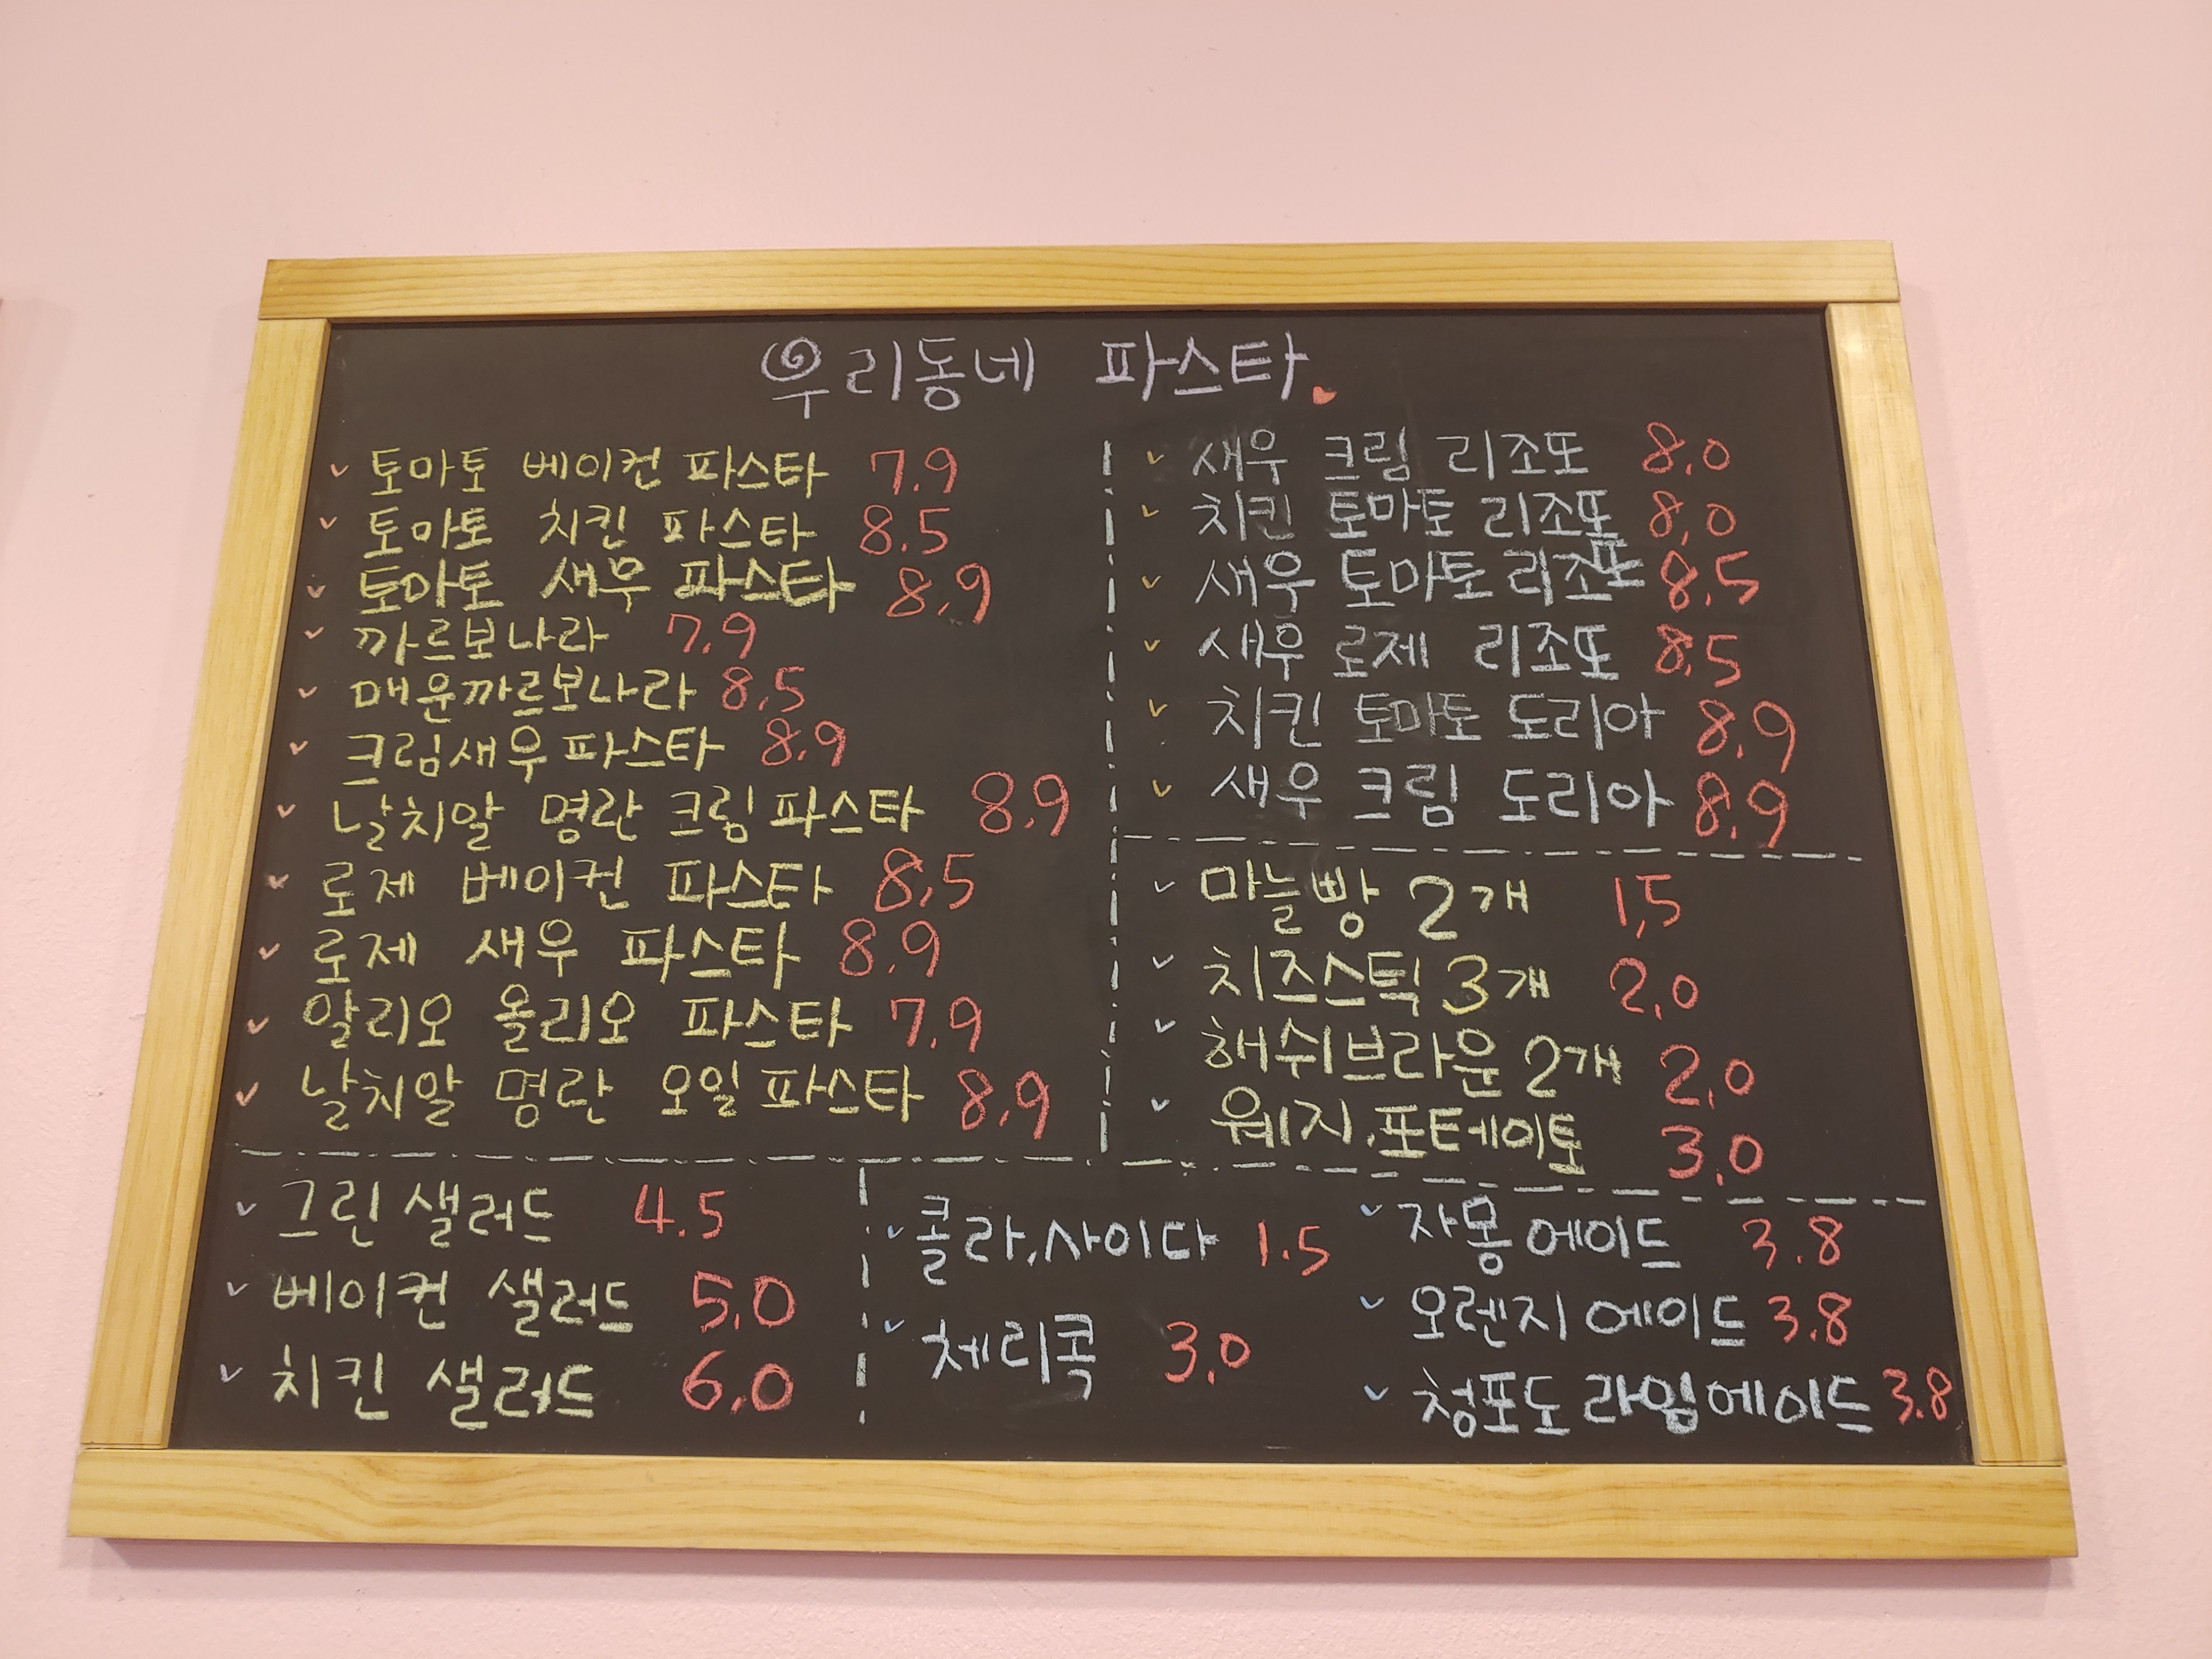 우리동네 파스타
토마토 베이컨 파스타 7.9
토마토 치킨 파스타 8.5
토마토 새우 파스타 8.9
까르보나라 7.9
매운까르보나라 8.5
크림새우파스타 8.9
날치알 명란 크림파스타 8.9
로제 베이컨 파스타 8.5
로제 새우 파스타 8.9
알리오 올리오 파스타 7.9
날치알 명란 오일파스타 8.9
새우 크림 리조또 8.0
치킨 토마토 리조또 8.0
새우 토마토 리조또 8.5
새우 로제 리조또 8.5
치킨 토마토 도리아 8.9
새우 크림 도리아 8.9
마늘빵 2개 1.5
치즈스틱 3개 2.0
해쉬브라운 2개 2.0
웨지.포테이토 3.0
그린 샐러드 4.5
베이컨 샐러드 5.0
치킨 샐러드 6.0
콜라,사이다 1.5
체리콕 3.0
자몽에이드 3.8
오렌지에이드 3.8
청포도라임에이드 3.8